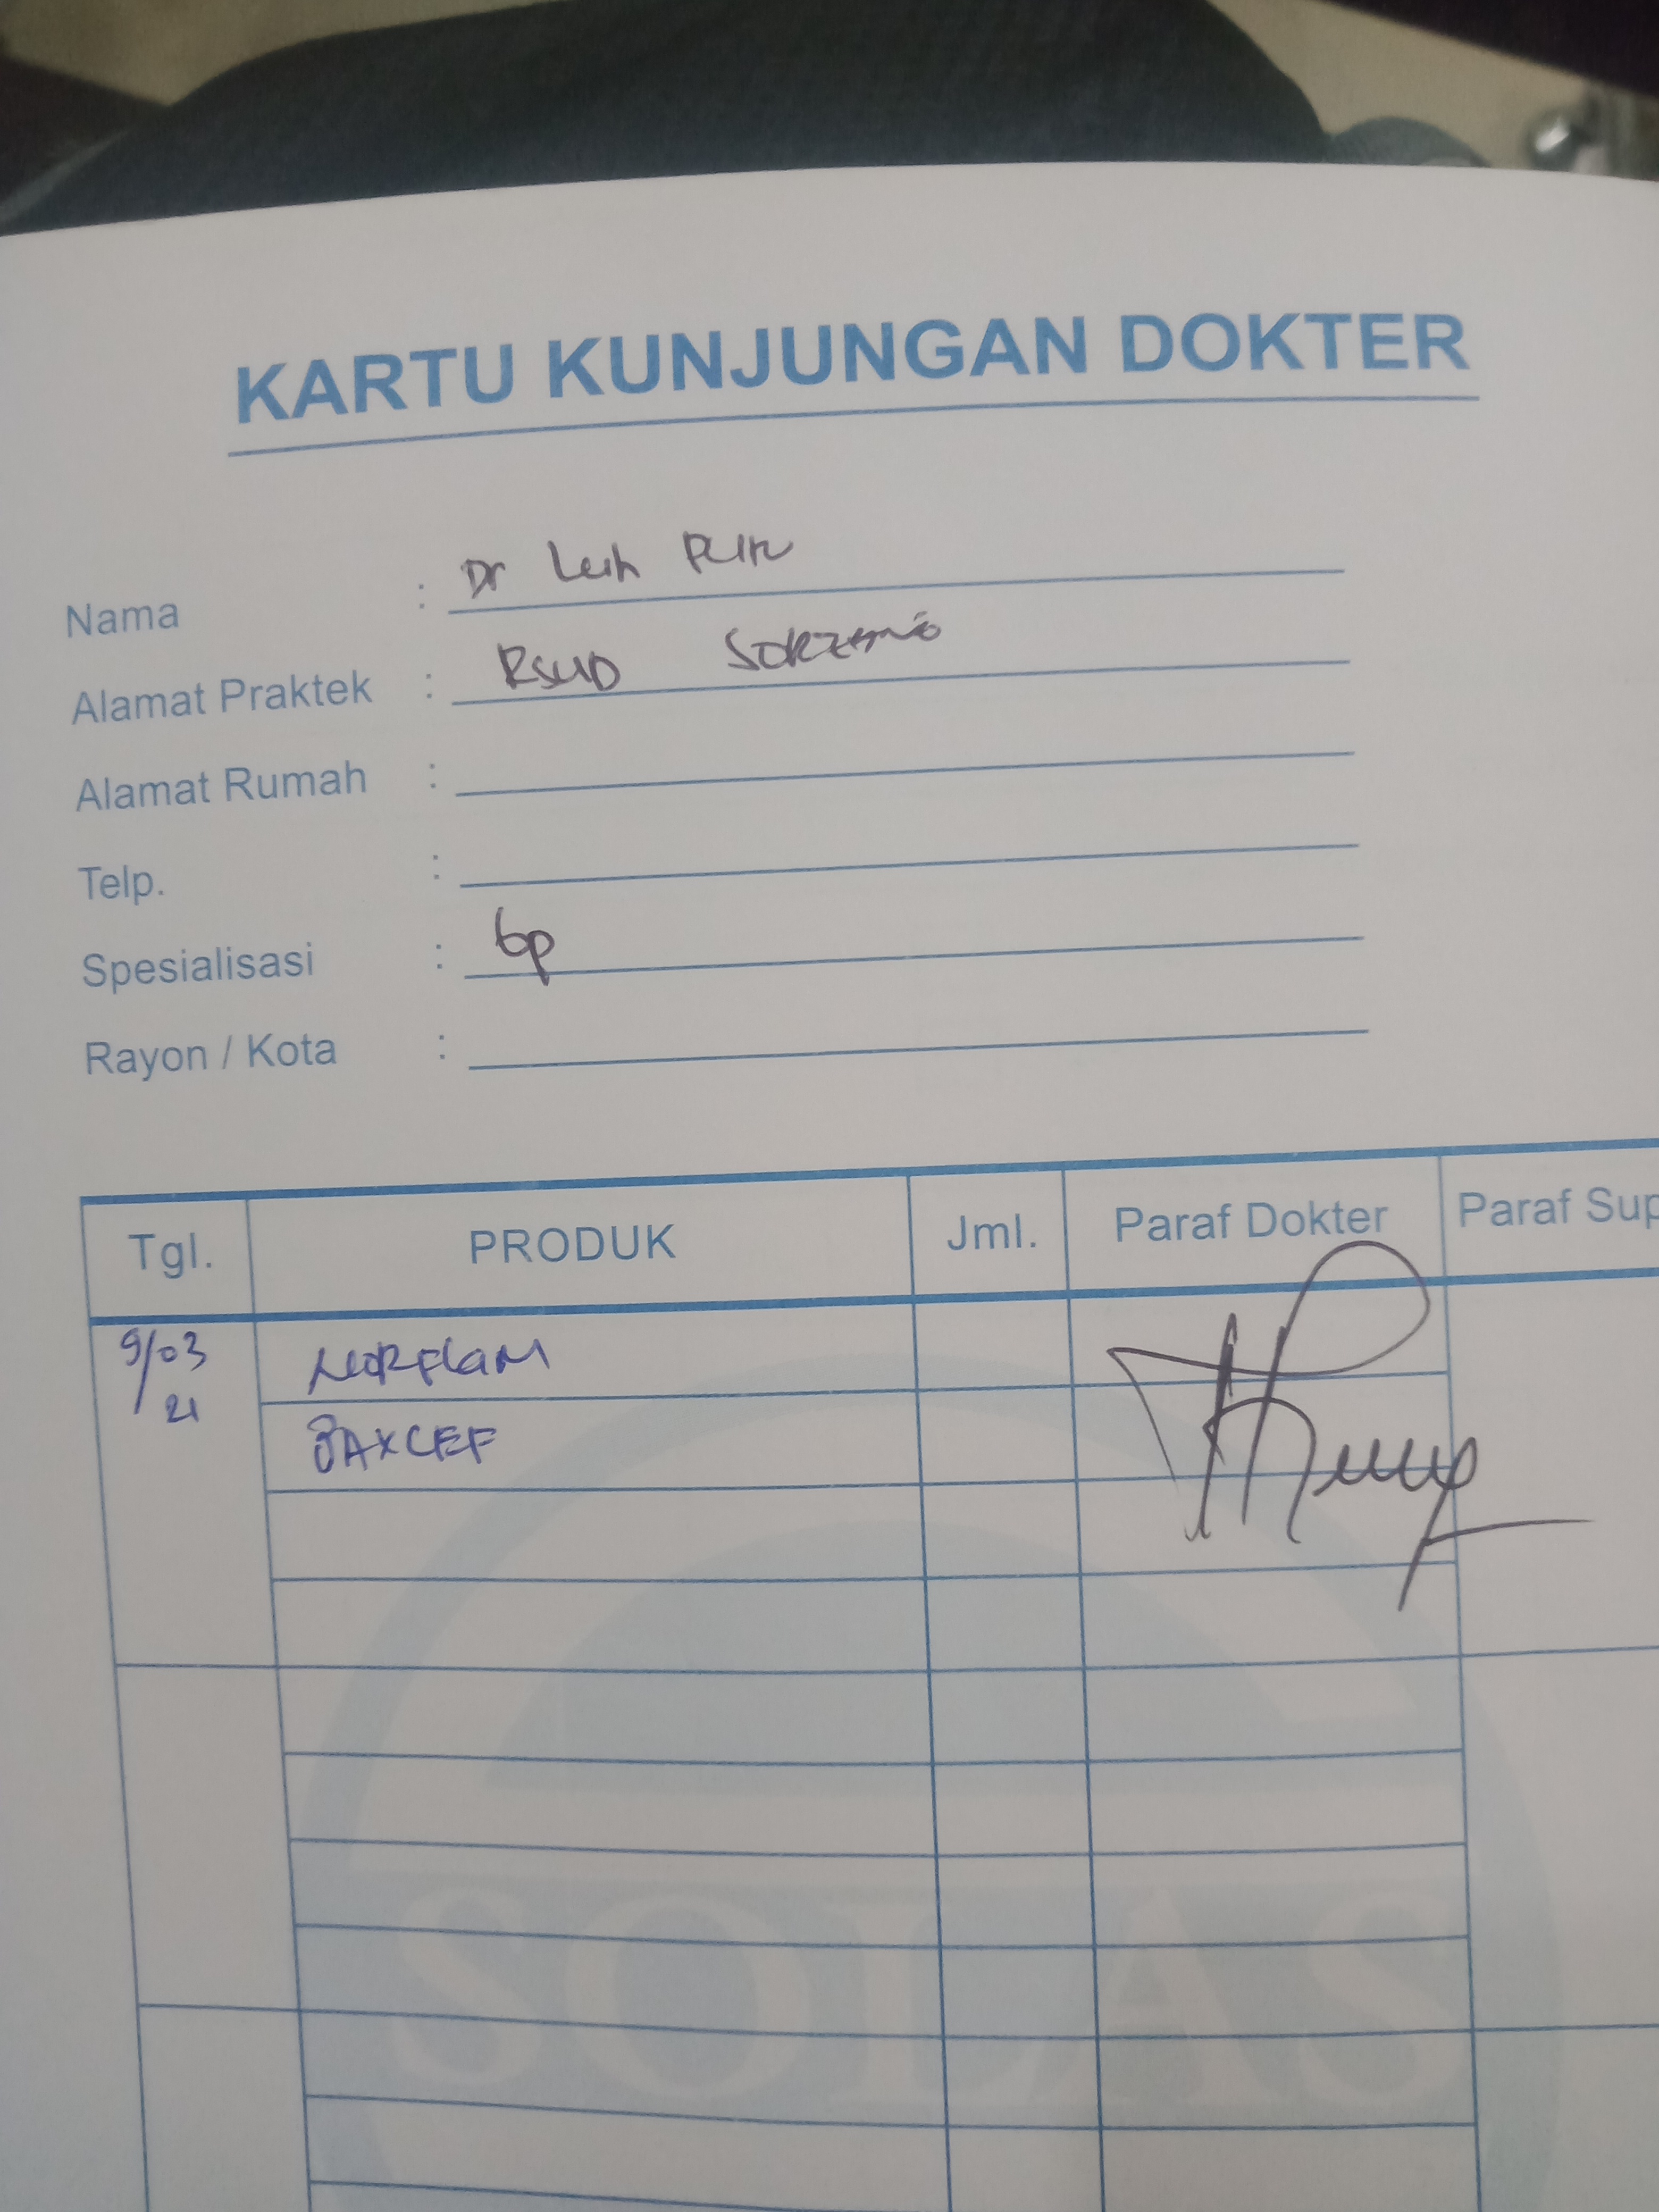 KARTU KUNJUNGAN DOKTER
Nama : Dr
Alamat Praktek : RSUD
Alamat Rumah :
Telp. :
Spesialisasi : Gp
Rayon / Kota :
Tgl. PRODUK Jml. Paraf Dokter Paraf Sup
9/03 NORFLAM
21
BAXCEF
SOLAS